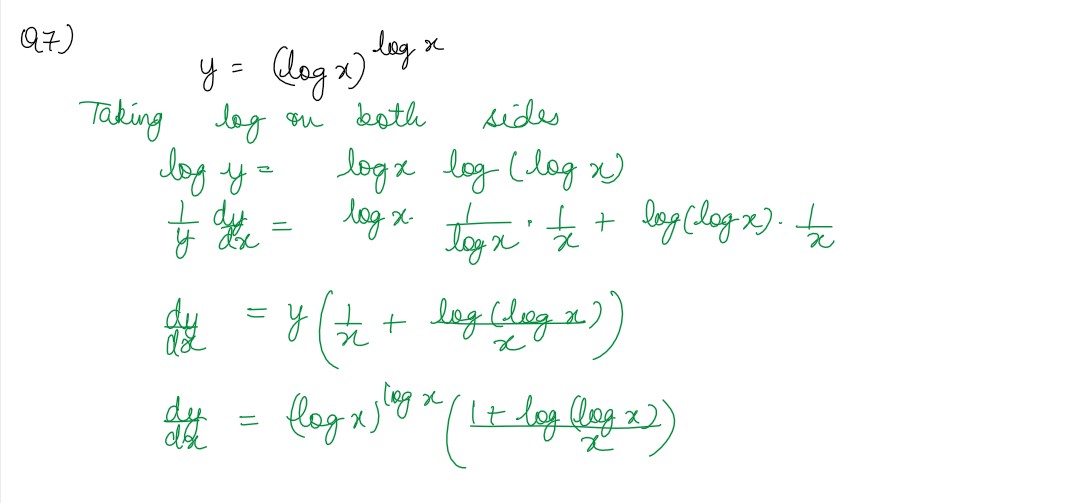 Q7)
y = (log x)^log x
Taking log on both sides
log y = log x log (log x)
1/y dy/dx = log x. 1/log x . 1/x + log(log x) . 1/x
dy/dx = y (1/x + log (log x)/x)
dy/dx = (log x)^log x (1 + log (log x)/x)